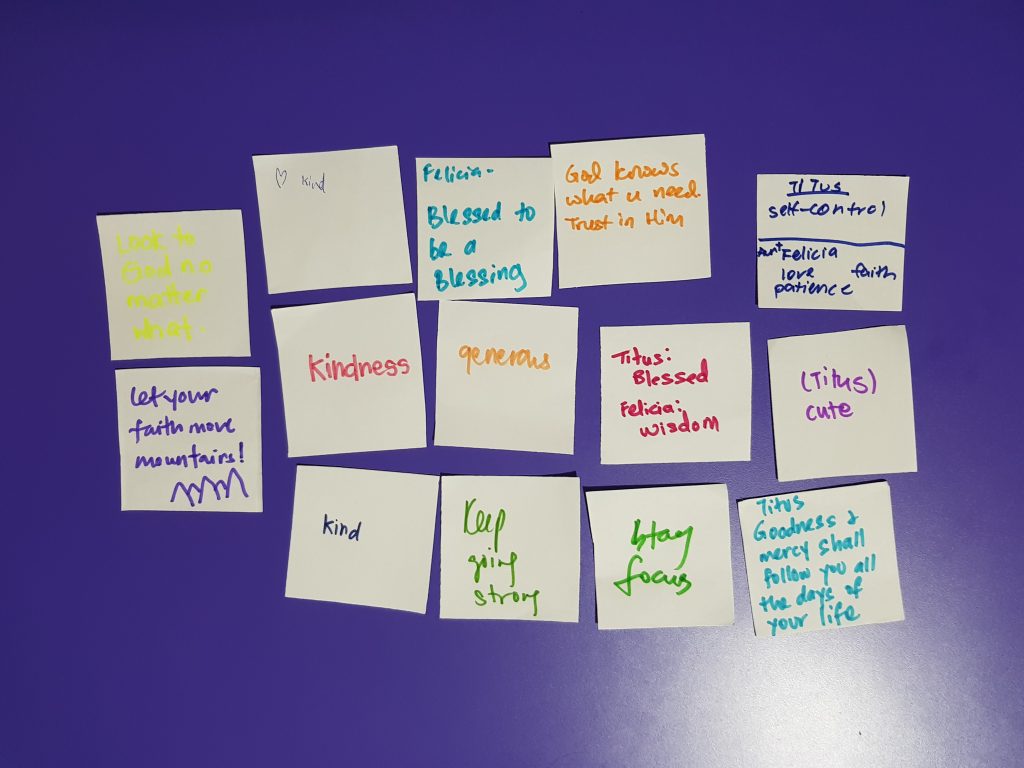 Look to
God no
matter
what.
kind
Felicia-
Blessed to
be a
Blessing
God knows
what u need.
Trust in Him
TITUS
self-control
Aunt Felicia
love faith
patience
Let your
faith move
mountains!
Kindness
generous
Titus:
Blessed
Felicia:
wisdom
(Titus)
cute
kind
Keep
going
strong
Stay
focus
Titus
Goodness &
mercy shall
follow you all
the days of
your life